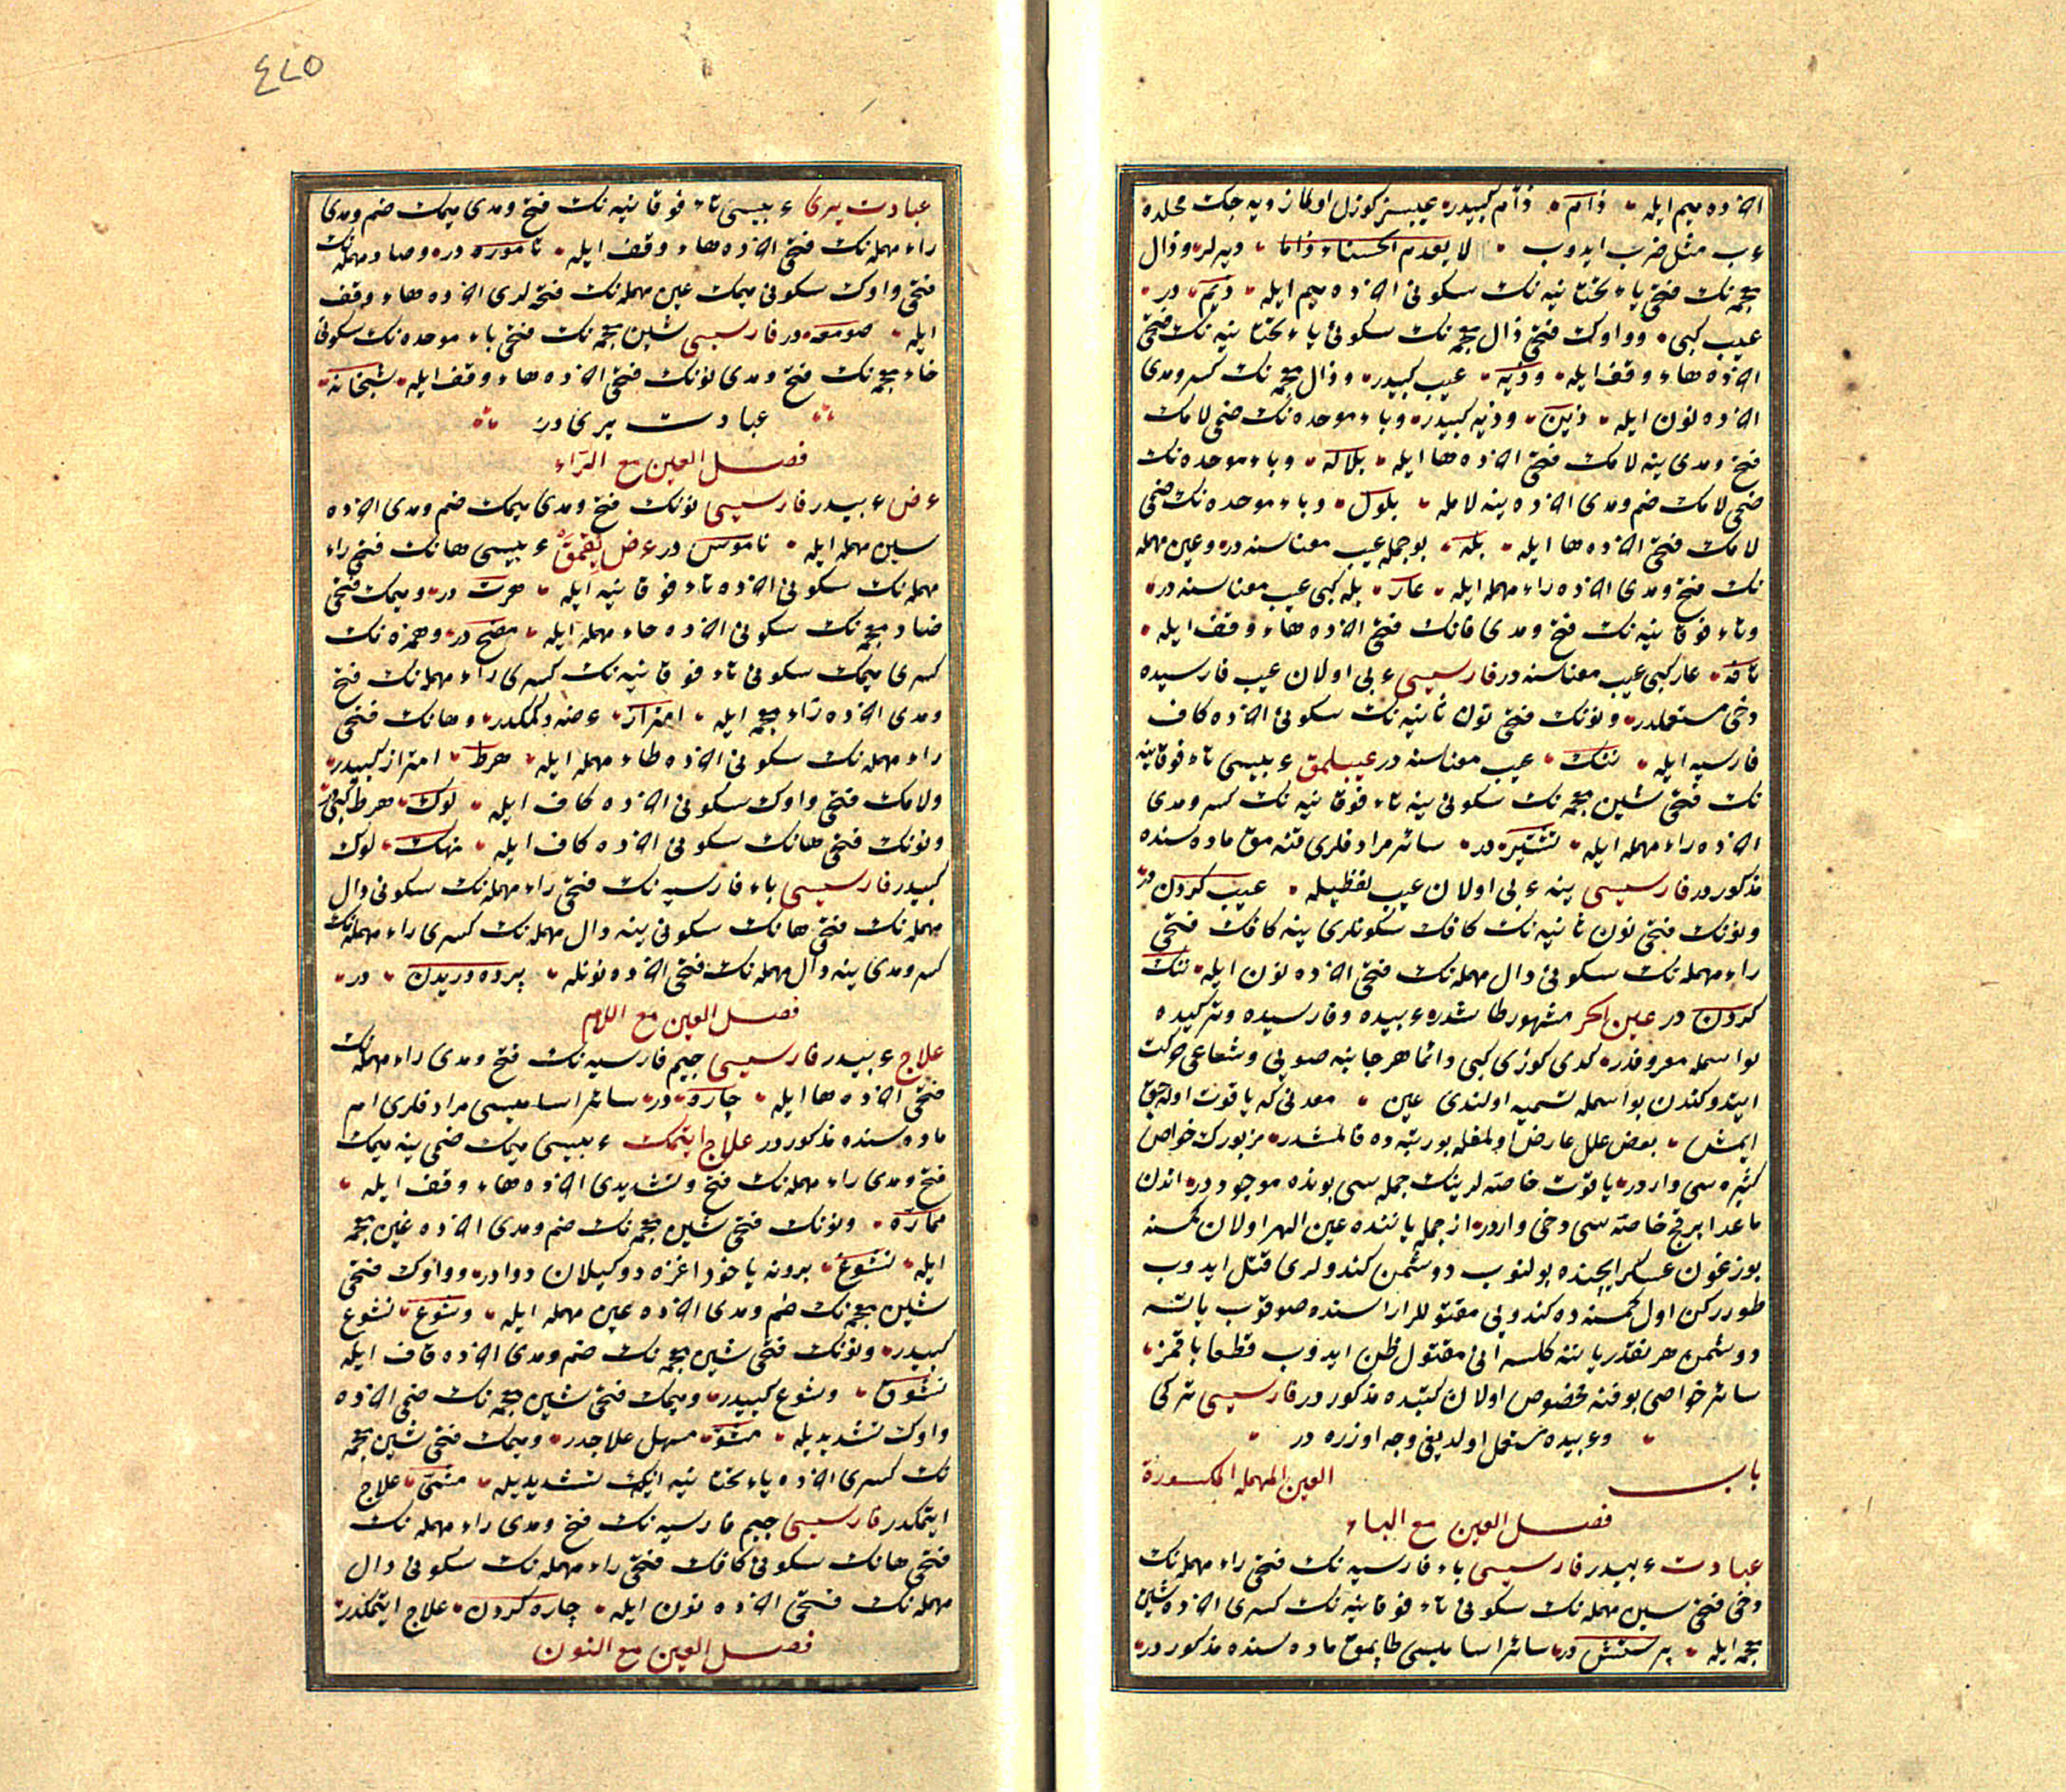 اخرده ميم ايله ذام ذأم كبيدر عيبسز كوزل اولماز ديه جك محلده
عرب مثل ضرب ايدوب لا يعدم الحسناء ذاما ديرلر و ذال
معجمه نك فتحى ياء تحتانيه نك سكونى اخرده ميم ايله ذيم در
عيب كبى و واوك فتحى ذال معجمه نك سكونى ياء تحتانيه نك فتحى
اخرده هاء وقف ايله وذيه عيب كبيدر و ذال معجمه نك كسر ومدى
اخرده نون ايله ذين وذيه كبيدر و باء موحده نك ضمى لامك
فتح ومدى ينه لامك فتحى اخرده ها ايله بلاله و باء موحده نك
ضمى لامك ضم ومدى اخرده ينه لامله بلول و باء موحده نك ضمى
لامك فتحى اخرده ها ايله بله بو جمله عيب معناسنه در و عين مهمله
نك فتح ومدى اخرده راء مهمله ايله عار بله كبى عيب معناسنه در
وتاء فوقانيه نك فتح ومدى فانك فتحى اخرده هاء وقف ايله
تافه عار كبى عيب معناسنه در فارسيسى عربى اولان عيب فارسيده
دخى مستعملدر و نونك فتحى نون ثانيه نك سكونى اخرده كاف
فارسيه ايله ننك عيب معناسنه در عيبلمق عربيسى تاء فوقانيه
نك فتحى شين معجمه نك سكونى ينه تاء فوقانيه نك كسر ومدى
اخرده راء مهمله ايله تشتير در سائر مرادفلرى قنه مق ماده سنده
مذكوردر فارسيسى ينه عربى اولان عيب لفظيله عيب كردن در
و نونك فتحى نون ثانيه نك كافك سكونلرى ينه كافك فتحى
راء مهمله نك سكونى دال مهمله نك فتحى اخرده نون ايله ننك
كردن در عين الهر مشهور طاشدر عربيده و فارسيده و تركيده
بو اسمله معروفدر كدى كوزى كبى دائما هر جانبه صويى و شعاعى حركت
ايتدوكندن بو اسمله تسميه اولندى عين معدنى كه ياقوت اوله جق
ايمش بعض علل عارض اولمغله بو رتبه ده قالمشدر مزبورك خواص
كثيره سى واردر ياقوت خاصه لرينك جمله سى بونده موجوددر اندن
ماعدا بر قچ خاصه سى دخى واردر از جمله ياننده عين الهر اولان كمسنه
بوزغون عسكر ايچنده بولنوب دوشمن كندولرى قتل ايدوب
طورركن اول كمسنه ده كندويى مقتوللر اراسنده صوقوب ياتسه
دوشمن هر نقدر ياننه كلسه انى مقتول ظن ايدوب قطعا باقمز
سائر خواصى بو فنه مخصوص اولان كتبده مذكوردر فارسيسى تركى
و عربيده مستعمل اولديغى وجه اوزره در
باب العين المهمله المكسورة
فصل العين مع الباء
عبادت عربيدر فارسيسى باء فارسيه نك فتحى راء مهمله نك
دخى فتحى سين مهمله نك سكونى تاء فوقانيه نك كسرى اخرده شين
معجمه ايله پرستش در سائر اساميسى طاپمق ماده سنده مذكوردر
٤٧٥
عبادت يرى عربيسى تاء فوقانيه نك فتح ومدى ميمك ضم ومدى
راء مهمله نك فتحى اخرده هاء وقف ايله تاموره در و صاد مهمله نك
فتحى واوك سكونى ميمك عين مهمله نك فتحه لرى اخرده هاء وقف
ايله صومعه در فارسيسى شين معجمه نك فتحى باء موحده نك سكونى
خاء معجمه نك فتح ومدى نونك فتحى اخرده هاء وقف ايله شبخانه
عبادت يرى در
فصل العين مع الراء
عرض عربيدر فارسيسى نونك فتح ومدى ميمك ضم ومدى اخرده
سين مهمله ايله ناموس در عرض ييقمق عربيسى هانك فتحى راء
مهمله نك سكونى اخرده تاء فوقانيه ايله هرت در و ميمك فتحى
ضاد معجمه نك سكونى اخرده حاء مهمله ايله مضح در و همزه نك
كسرى ميمك سكونى تاء فوقانيه نك كسرى راء مهمله نك فتح
ومدى اخرده زاء معجمه ايله امتراز عرضنه دكمكدر و هانك فتحى
راء مهمله نك سكونى اخرده طاء مهمله ايله هرط امتراز كبيدر
و لامك فتحى واوك سكونى اخرده كاف ايله لوك هرط كبيدر
و نونك فتحى هانك سكونى اخرده كاف ايله نهك لوك
كبيدر فارسيسى باء فارسيه نك فتحى راء مهمله نك سكونى دال
مهمله نك فتحى هانك سكونى ينه دال مهمله نك كسرى راء مهمله نك
كسر ومدى ينه دال مهمله نك فتحى اخرده نونله پرده دريدن در
فصل العين مع اللام
علاج عربيدر فارسيسى جيم فارسيه نك فتح ومدى راء مهمله نك
فتحى اخرده ها ايله چاره در سائر اساميسى مرادفلرى ام
ماده سنده مذكوردر علاج ايتمك عربيسى ميمك ضمى ينه ميمك
فتح ومدى راء مهمله نك فتح و تشديدى اخرده هاء وقف ايله
مماره و نونك فتحى شين معجمه نك ضم ومدى اخرده غين معجمه
ايله نشوغ برونه ياخود اغزه دوكيلان دوادر و واوك فتحى
شين معجمه نك ضم ومدى اخرده عين مهمله ايله وشوع نشوغ
كبيدر و نونك فتحى شين معجمه نك ضم ومدى اخرده قاف ايله
نشوق وشوع كبيدر و ميمك فتحى شين معجمه نك ضمى اخرده
واوك تشديديله مشوّ مسهل علاجدر و ميمك فتحى شين معجمه
نك كسرى اخرده ياء تحتانيه نك تشديديله مشىّ علاج
ايتمكدر فارسيسى جيم فارسيه نك فتح ومدى راء مهمله نك
فتحى هانك سكونى كافك فتحى راء مهمله نك سكونى دال
مهمله نك فتحى اخرده نون ايله چاره كردن علاج ايتمكدر
فصل العين مع النون